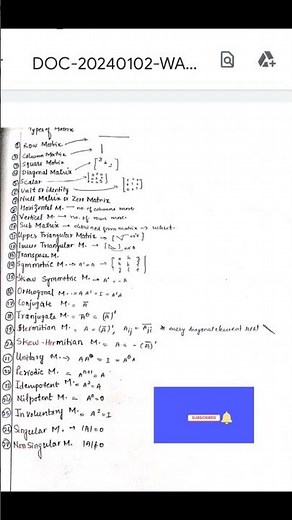 DOC-20240102-WA...
Types of Matrix
① Row Matrix
② Column Matrix
③ Square Matrix
④ Diagonal Matrix
⑤ Scalar
⑥ Unit or identity
⑦ Null Matrix or Zero Matrix
Horizontal M. → no of columns more
Vertical M. → no. of rows more
Sub Matrix → obtained from matrix → subset.
Upper Triangular Matrix →
Lower Triangular M. →
Transpose M.
Symmetric M. → A' = A →
Skew Symmetric M. → A' = -A
Orthogonal M. → AA' = I = A'A
⑰ Conjugate M. = Ā
⑱ Tranjugate M. = Ā^θ = (Ā)'
⑲ Hermitian M. = A = (Ā)', Aij = Āji * every diagonal element real
⑳ Skew-Hermitian M. = A = -(Ā)'
㉑ Unitary M. → AA^θ = I = A^θA
㉒ Periodic M. = A^(k+1) = A
㉓ Idempotent M. = A² = A
㉔ Nilpotent M. = A^k = 0
㉕ Involuntary M. = A² = I
㉖ Singular M. → |A| = 0
㉗ Non Singular M. |A| ≠ 0
SUBSCRIBED